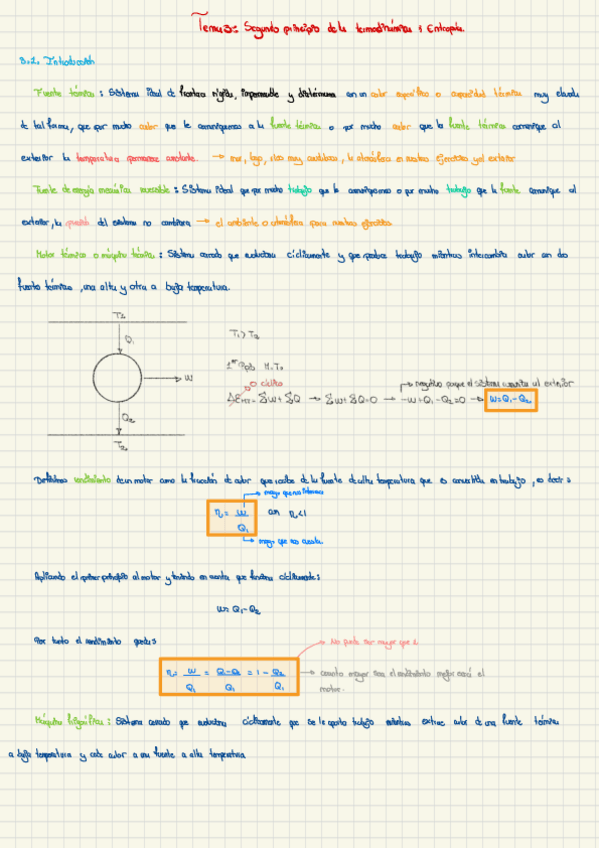 Tema 3: Segundo principio de la termodinámica y Entropía.
3.1. Introducción
Fuente térmica: Sistema ideal de frontera rígida, impermeable y diatérmana con un calor específico o capacidad térmica muy elevada
de tal forma, que por mucho calor que le comuniquemos a la fuente térmica o por mucho calor que la fuente térmica comunique al
exterior la temperatura permanece constante. → mar, lago, ríos muy caudalosos, la atmósfera en nuestros ejercicios y el exterior
Fuente de energía mecánica reversible: Sistema ideal que por mucho trabajo que le comuniquemos o por mucho trabajo que la fuente comunique al
exterior, la presión del sistema no cambiara → el ambiente o atmósfera para nuestros ejercicios
Motor térmico o máquina térmica: Sistema cerrado que evoluciona cíclicamente y que produce trabajo mientras intercambia calor con dos
fuentes térmicas, una alta y otra a baja temperatura.
T1
Q1
W
Q2
T2
T1 > T2
1er Ppio M.T.
0 cíclico
negativo porque el sistema comunica al exterior
ΔE M.T. = ΣW + ΣQ → ΣW + ΣQ = 0 → -W + Q1 - Q2 = 0 → W = Q1 - Q2
Definimos rendimiento de un motor como la fracción de calor que recibe de la fuente de alta temperatura que es convertida en trabajo, es decir:
energ. que nos interesa
η = W / Q1 con η < 1
energ. que nos cuesta
Aplicando el primer principio al motor y teniendo en cuenta que funciona cíclicamente:
W = Q1 - Q2
Por tanto el rendimiento queda:
No puede ser mayor que 1
η = W / Q1 = Q1 - Q2 / Q1 = 1 - Q2 / Q1 → cuanto mayor sea el rendimiento mejor será el
motor.
Máquina frigorífica: Sistema cerrado que evoluciona cíclicamente que se le aporta trabajo mientras extrae calor de una fuente térmica
a baja temperatura y cede calor a una fuente a alta temperatura